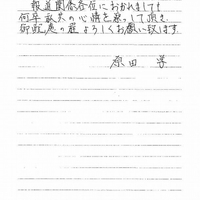 報道関係各位におかれましても
何卒故人の心情を察して頂き
御配慮の程よろしくお願い致します
原田